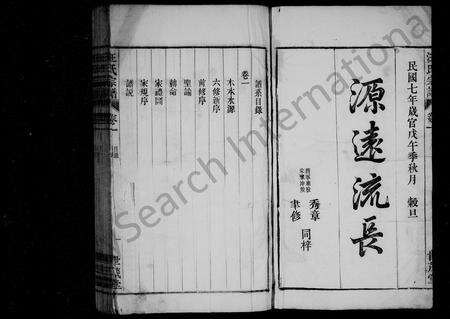 民國七年歲官戊午季秋月 穀旦
源遠流長
秀章
聿修
同梓
譜系目錄
卷一
木本水源
六修新序
前修序
聖諭
誥命
家禮圖
家規序
譜說
汪氏宗譜
卷一
Search International